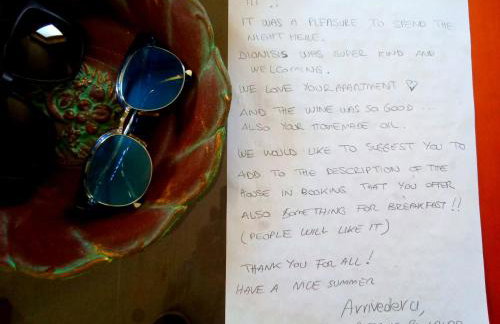 HI !!
IT WAS A PLEASURE TO SPEND THE
NIGHT HERE.
DIONISIS WAS SUPER KIND AND
WELCOMING.
WE LOVE YOUR APARTMENT ♡
AND THE WINE WAS SO GOOD ...
ALSO YOUR HOMEMADE OIL.
WE WOULD LIKE TO SUGGEST YOU TO
ADD TO THE DESCRIPTION OF THE
HOUSE IN BOOKING THAT YOU OFFER
ALSO SOMETHING FOR BREAKFAST!!
(PEOPLE WILL LIKE IT)
THANK YOU FOR ALL!
HAVE A NICE SUMMER
Arrivederci,